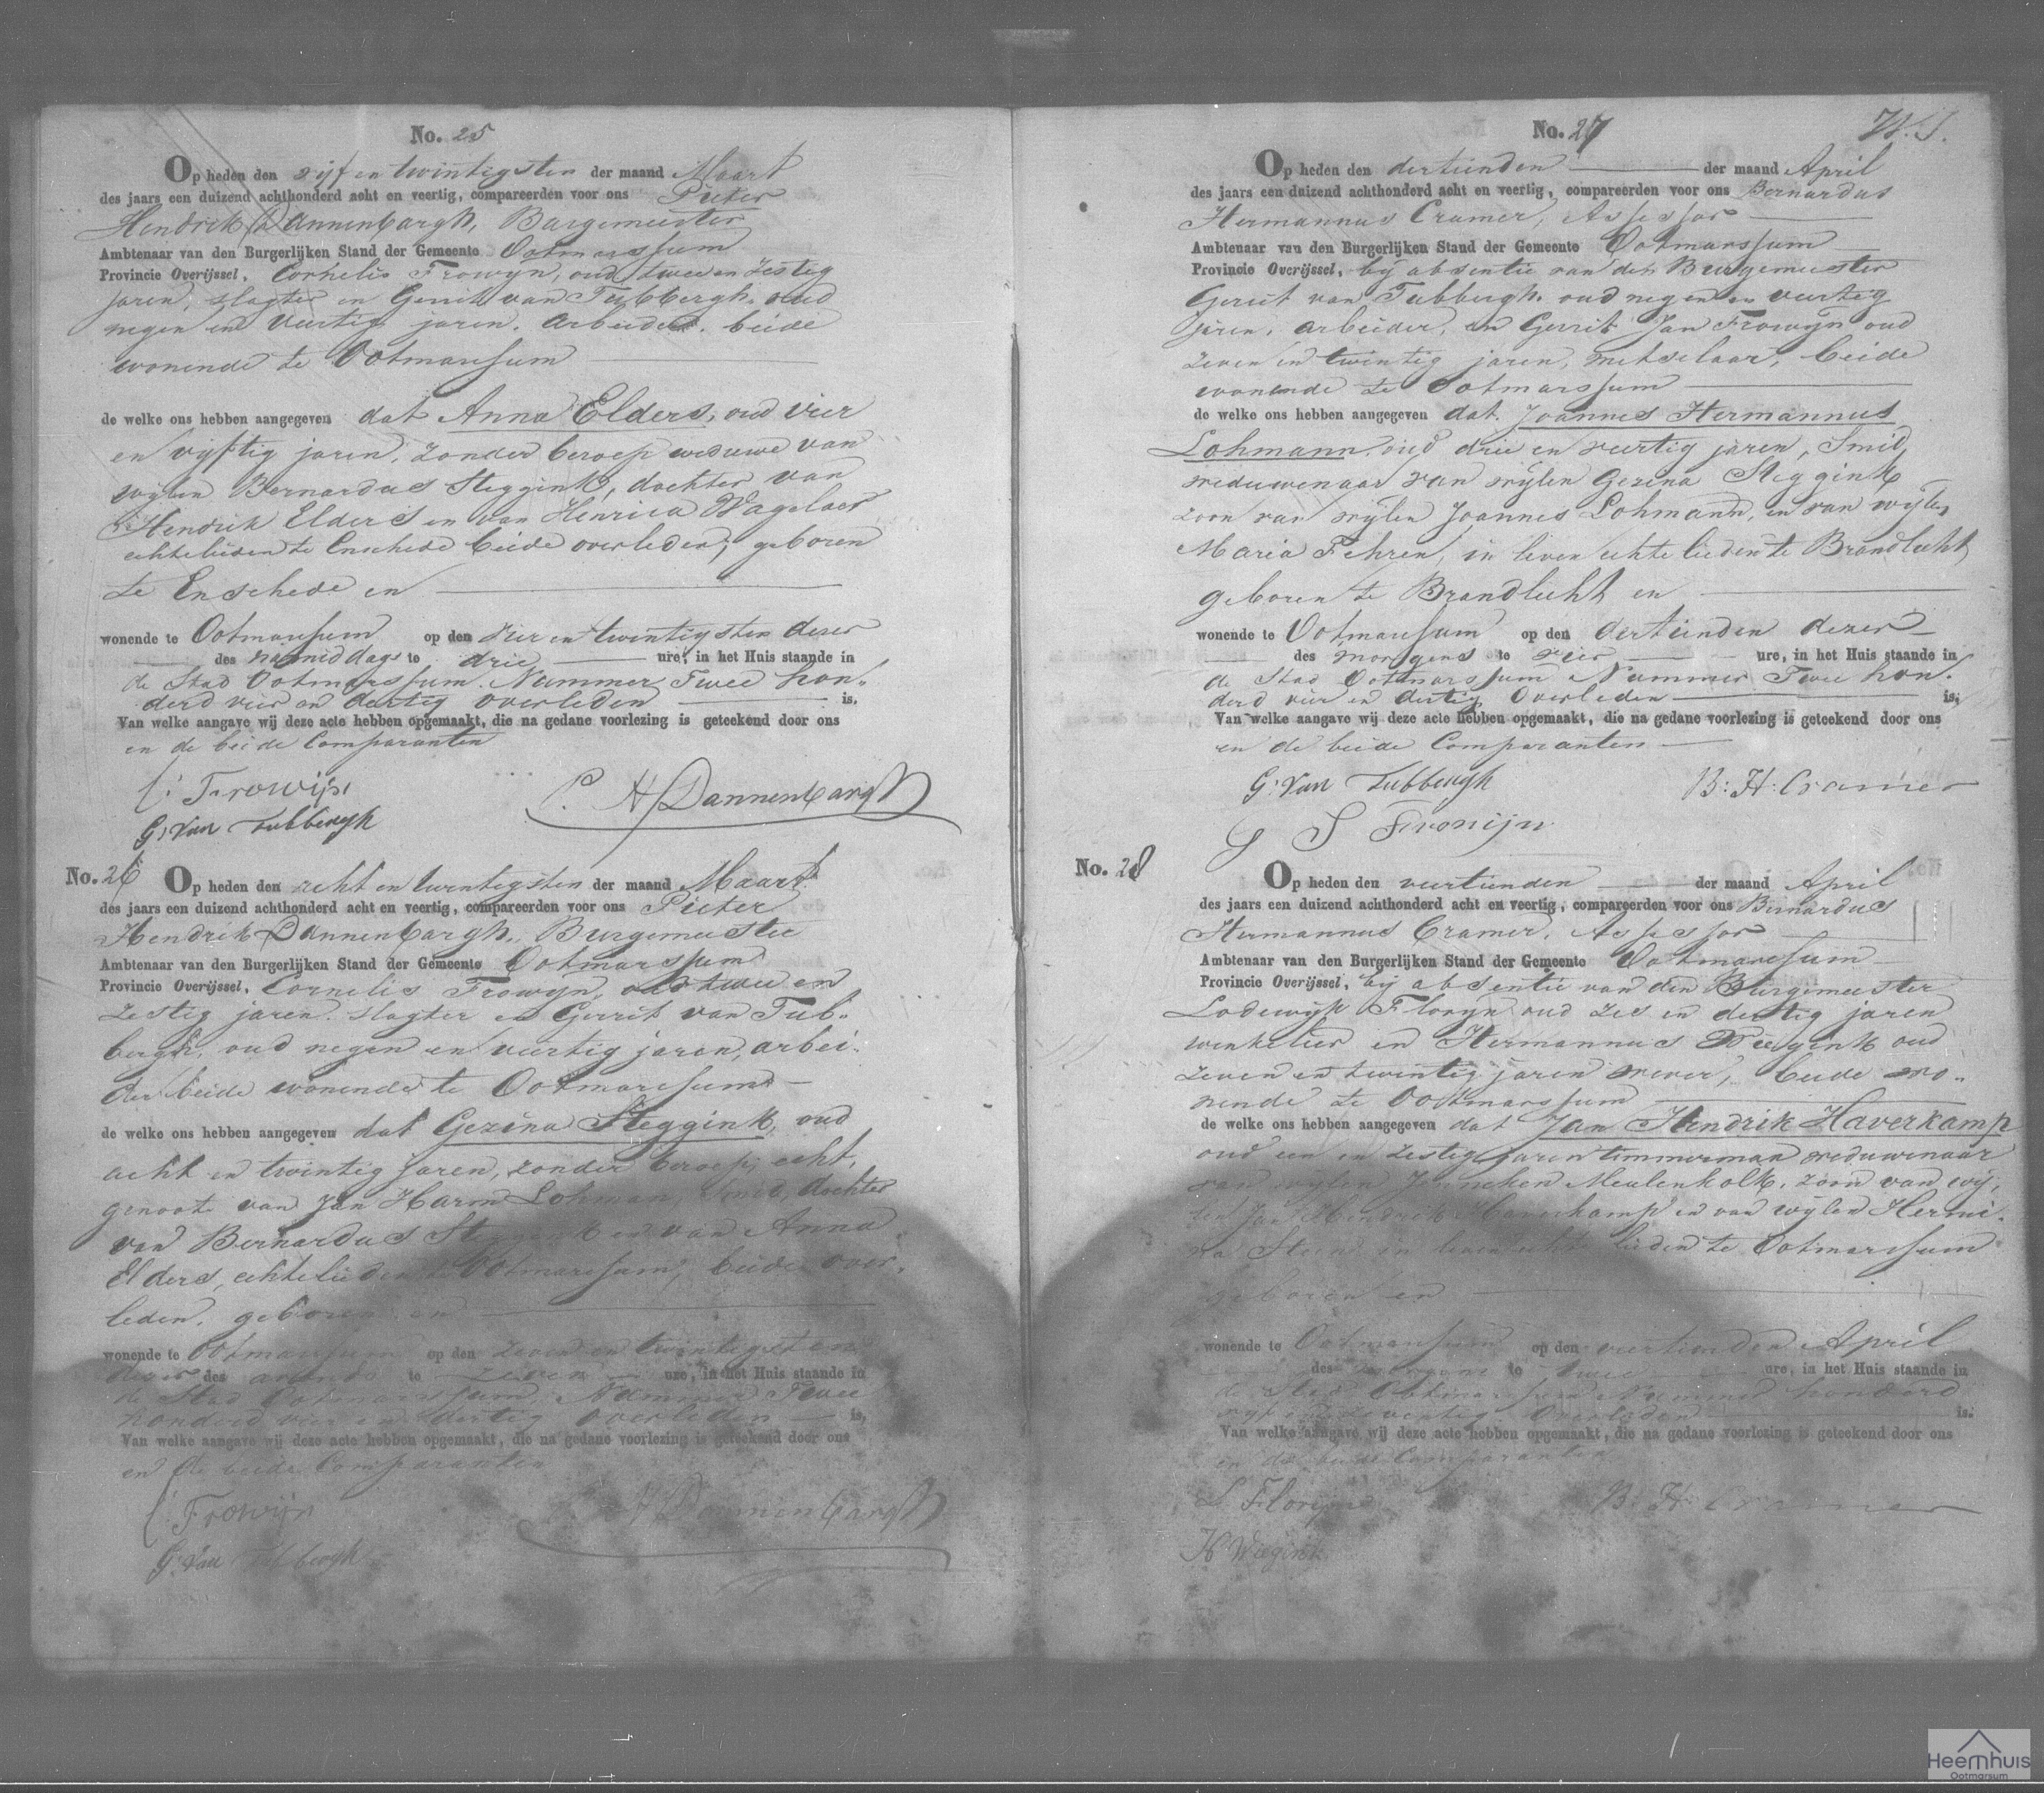 No. 25
Op heden den vijf en twintigsten der maand Maart
des jaars een duizend achthonderd acht en veertig, compareerden voor ons Pieter
Hendrik Dannenbargh, Burgemeester
Ambtenaar van den Burgerlijken Stand der Gemeente Ootmarssum
Provincie Overijssel, Cornelis Frowijn, oud twee en zestig
jaren, slagter en Gerrit van Tubbergh, oud
negen en veertig jaren, arbeider, beide
wonende te Ootmarssum
de welke ons hebben aangegeven dat Anna Elders, oud vier
en vijftig jaren, zonder beroep weduwe van
wijlen Bernardus Steggink, dochter van
Hendrik Elders en van Henrica Wagelaer
echtelieden te Enschede beide overleden, geboren
te Enschede en
wonende te Ootmarssum op den vier en twintigsten dezer
des namiddags te drie ure, in het Huis staande in
de Stad Ootmarssum Nummer Twee hon-
derd vier en dertig overleden is.
Van welke aangave wij deze acte hebben opgemaakt, die na gedane voorlezing is geteekend door ons
en de beide Comparanten
C: Frowijn
P. H Dannenbargh
G: Van Tubbergh
No. 26 Op heden den acht en twintigsten der maand Maart
des jaars een duizend achthonderd acht en veertig, compareerden voor ons Pieter
Hendrik Dannenbargh, Burgemeester
Ambtenaar van den Burgerlijken Stand der Gemeente Ootmarssum
Provincie Overijssel, Cornelis Frowijn, oud twee en
zestig jaren, slagter en Gerrit van Tub-
bergh, oud negen en veertig jaren, arbei-
der beide wonende te Ootmarssum
de welke ons hebben aangegeven dat Gezina Steggink, oud
acht en twintig jaren, zonder beroep, echt-
genoote van Jan Harm Lohman, Smid, dochter
van Bernardus Steggink en van Anna
Elders, echtelieden te Ootmarssum, beide over-
leden, geboren en
wonende te Ootmarssum op den zeven en twintigsten
dezer des avonds te zeven ure, in het Huis staande in
de Stad Ootmarssum, Nummer Twee
honderd vier en dertig overleden is.
Van welke aangave wij deze acte hebben opgemaakt, die na gedane voorlezing is geteekend door ons
en de beide Comparanten
C: Frowijn
P. H Dannenbargh
G: Van Tubbergh
No. 27
Op heden den dertienden der maand April
des jaars een duizend achthonderd acht en veertig, compareerden voor ons Bernardus
Hermannus Cramer, Assessor
Ambtenaar van den Burgerlijken Stand der Gemeente Ootmarssum
Provincie Overijssel, bij absentie van den Burgemeester
Gerrit van Tubbergh, oud negen en veertig
jaren, arbeider, en Gerrit Jan Frowijn oud
zeven en twintig jaren, metselaar, beide
wonende te Ootmarssum
de welke ons hebben aangegeven dat Joannes Hermannus
Lohmann, oud drie en veertig jaren, Smid,
weduwenaar van wijlen Gezina Steggink
zoon van wijlen Joannes Lohmann, en van wijlen
Maria Fehren, in leven echtelieden te Brandlecht
geboren te Brandlecht en
wonende te Ootmarssum op den dertienden dezer
des morgens te vier ure, in het Huis staande in
de Stad Ootmarssum Nummer Twee hon-
derd vier en dertig Overleden is;
Van welke aangave wij deze acte hebben opgemaakt, die na gedane voorlezing is geteekend door ons
en de beide Comparanten
G: Van Tubbergh
B: H: Cramer
Frowijn
No. 28
Op heden den veertienden der maand April
des jaars een duizend achthonderd acht en veertig, compareerden voor ons Bernardus
Hermannus Cramer, Assessor
Ambtenaar van den Burgerlijken Stand der Gemeente Ootmarssum
Provincie Overijssel, bij absentie van den Burgemeester
Lodewijk Florijn oud zes en dertig jaren
winkelier en Hermannus Wiegink oud
zeven en twintig jaren wever, beide wo-
nende te Ootmarssum
de welke ons hebben aangegeven dat Jan Hendrik Haverkamp
oud een en zestig jaren timmerman weduwenaar
van wijlen Jenneken Meulenholt, zoon van wij-
len Jan Hendrik Haverkamp en van wijlen Hermi-
na Steen in leven echtelieden te Ootmarssum
geboren en
wonende te Ootmarssum op den veertienden April
des morgens te twee ure, in het Huis staande in
de Stad Ootmarssum Nummer honderd
vijf en zeventig Overleden is.
Van welke aangave wij deze acte hebben opgemaakt, die na gedane voorlezing is geteekend door ons
en de beide Comparanten
L Florijn
B: H: Cramer
H Wiegink
Heemhuis
Ootmarsum